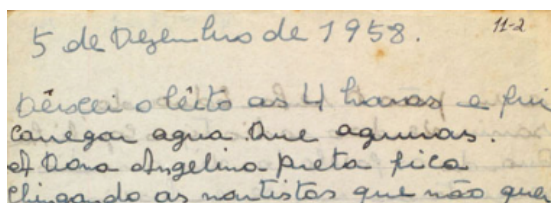 5 de Dezembro de 1958.
11-2
Dêixei o lêito as 4 horas e fui
caregar agua. Que agruras.
A Dona Angelina preta fica
chingando as nortistas que não quer